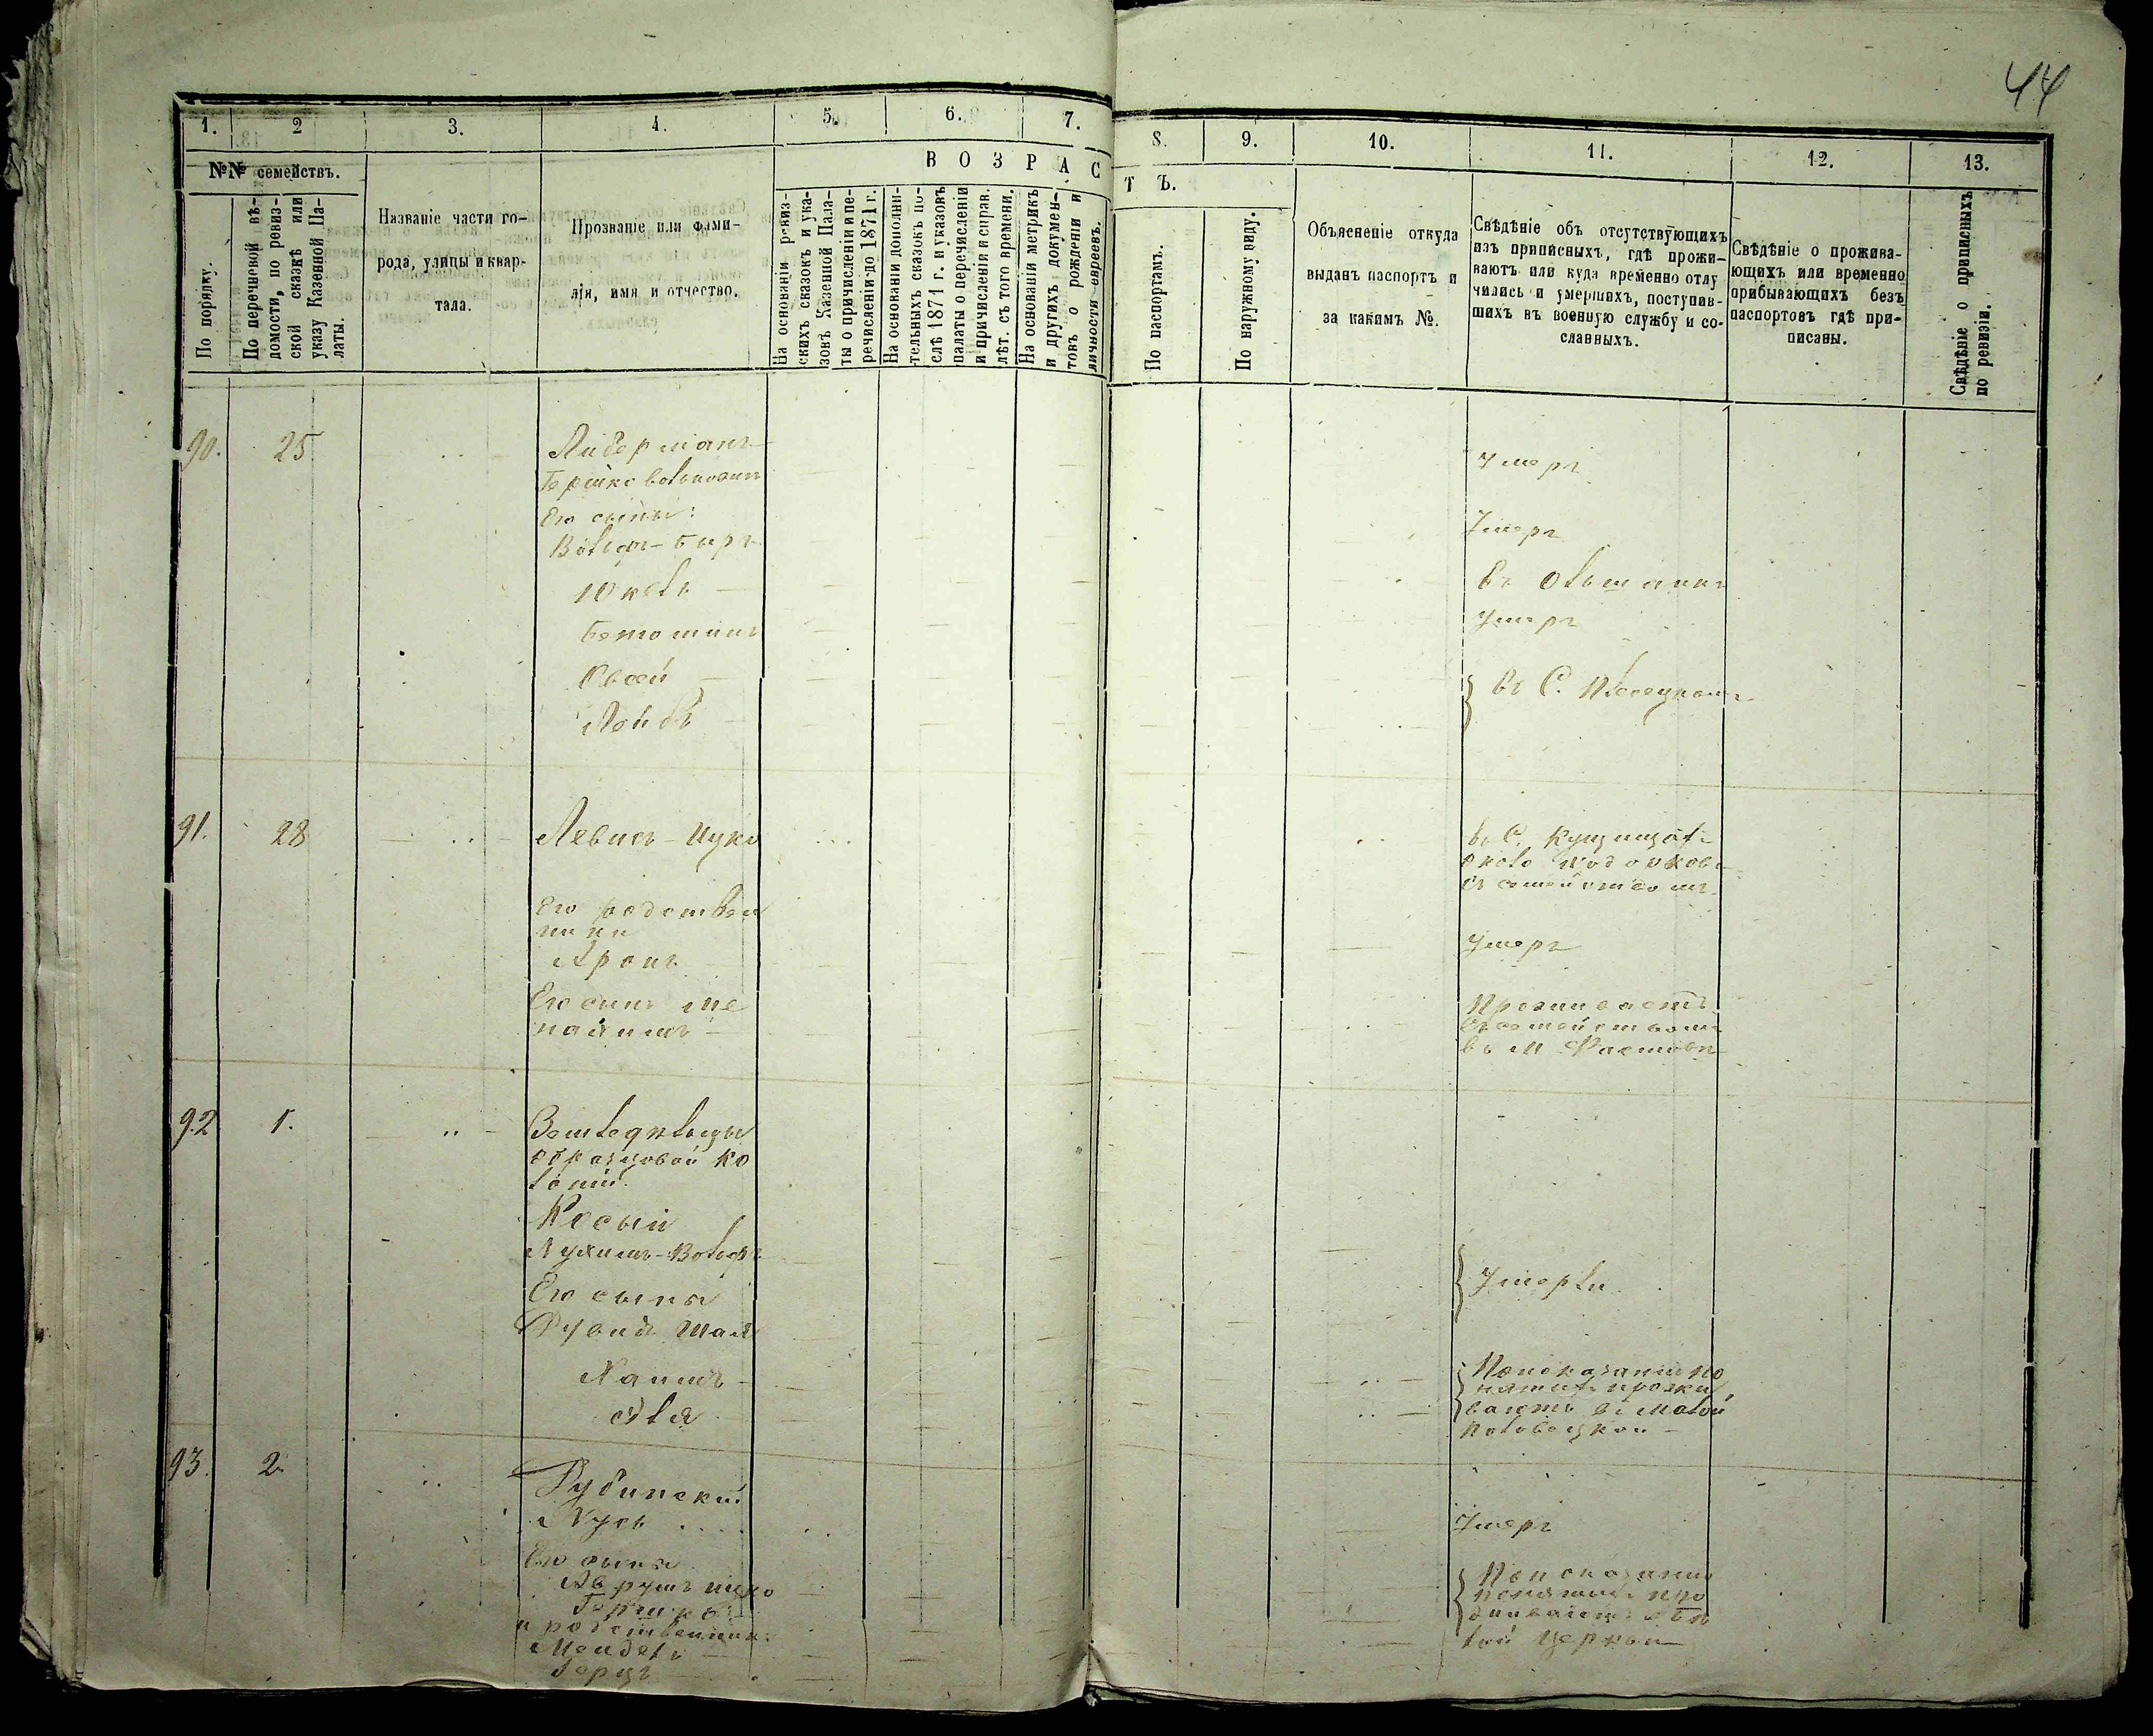 44
1. 2 3. 4. 5. 6. 7. 8. 9. 10. 11. 12. 13.
№№ семействъ.
По порядку.
По перечневой вѣ-
домости, по ревиз-
ской сказкѣ или
указу Казенной Па-
латы.
Названіе части го-
рода, улицы и квар-
тала.
Прозваніе или фами-
лія, имя и отчество.
ВОЗРАСТЪ.
На основаніи ревиз-
скихъ сказокъ и ука-
зовъ Казенной Пала-
ты о причисленіи и пе-
речисленіи до 1871 г.
На основаніи дополни-
тельныхъ сказокъ по-
слѣ 1871 г. и указовъ
палаты о перечисленіи
и причисленія и справ.
лѣт. съ того времени.
На основаніи метрикъ
и другихъ докумен-
товъ о рожденіи и
личности евреевъ.
По паспортамъ.
По наружному виду.
Объясненіе откуда
выданъ паспортъ и
за какимъ №.
Свѣдѣніе объ отсутствующихъ
изъ приписныхъ, гдѣ прожи-
ваютъ или куда временно отлу
чились и умершихъ, поступив-
шихъ въ военную службу и со-
сланныхъ.
Свѣдѣніе о прожива-
ющихъ или временно
прибывающихъ безъ
паспортовъ гдѣ при-
писаны.
Свѣдѣніе о приписныхъ
по ревизіи.
90. 25 Либерманъ
Гершко Вольковичъ Умеръ
Его сыны:
Вольфъ-Беръ Умеръ
Юкель въ Ольшанкѣ
Беніоминъ Умеръ
Овсей
Лейбъ въ С. Плесецкомъ
91. 28 Левитъ-Ицко въ С.
около
съ семействомъ
Его родствен
ники
Аронъ Умеръ
Его сынъ Ме
нахимъ
Проживаетъ
съ семействомъ
въ М. Фастовѣ
92 1. Земледѣльцы
образцовой ко
лоніи.
Косый
Нухимъ-Вольфъ
Его сыны
Рувинъ Шая
Умерли
Хаимъ
Эля
По показанію по
нятыхъ прожи
ваютъ въ Малой
Половецкой
93. 2. Рубинскій
Нусь Умеръ
Его сыны
Аврумъ Ицко
Гершко
и родственники:
Мендель
Герцъ
По показанію
понятыхъ про
живаютъ въ Бѣ
лой Церкви